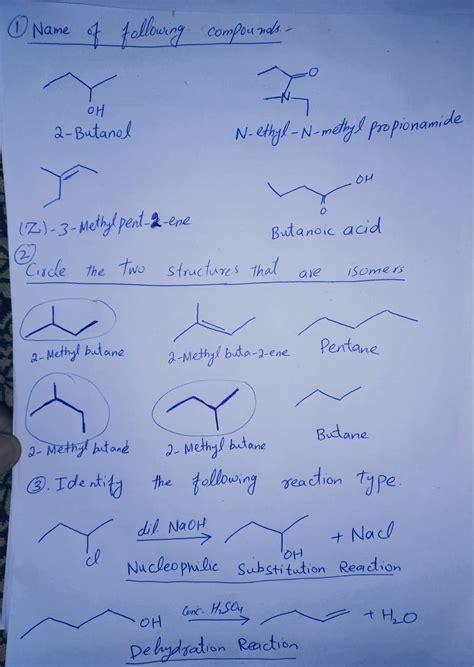 ① Name of following compounds:-
O
N
OH
2-Butanol
N-ethyl-N-methyl propionamide
OH
O
(Z)-3-Methylpent-2-ene
Butanoic acid
②
Circle the two structures that are isomers
2-Methyl butane
2-Methyl buta-2-ene
Pentane
2-Methyl butane
2-Methyl butane
Butane
③. Identify the following reaction type.
Cl
dil. NaOH
OH
+ Nacl
Nucleophilic Substitution Reaction
OH
Conc. H₂SO₄
+ H₂O
Dehydration Reaction